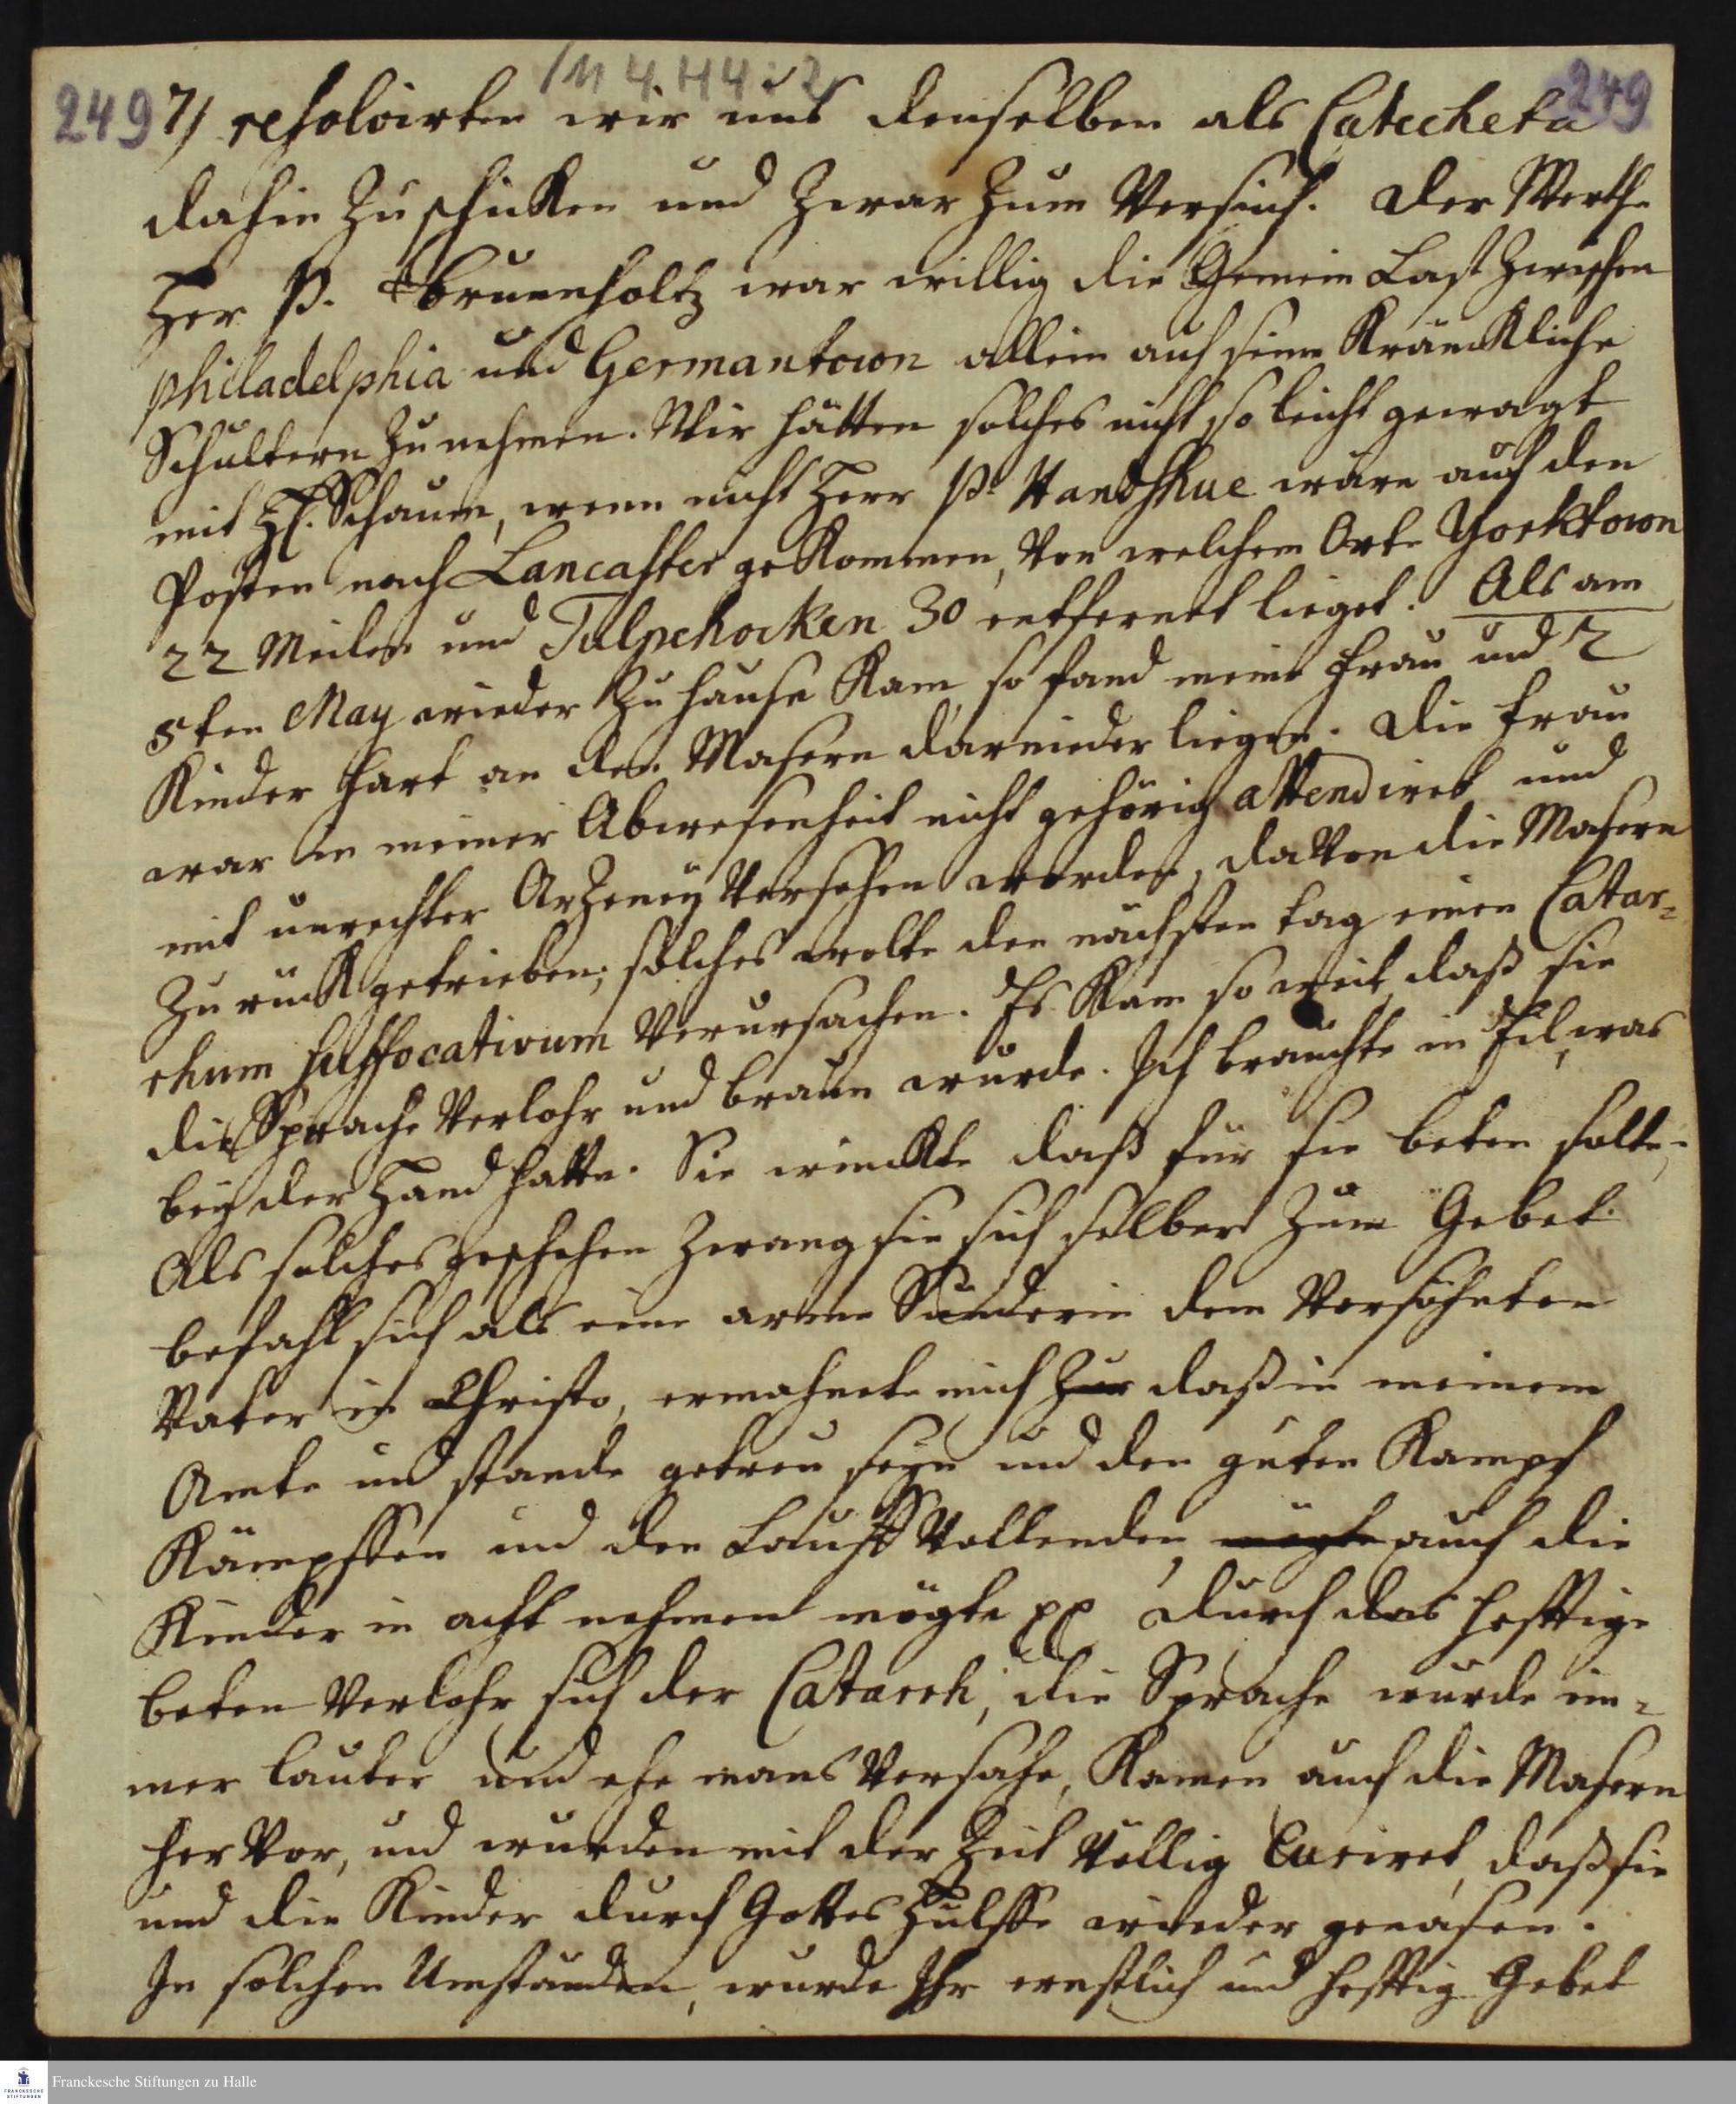 /M 4 H 4 : 2
249 7/ resolvirten wir uns denselben als Catecheta 249
dahin zu schicken und zwar zum Versuch. Der Werthe
Herr P. Brunnholtz war willig die Gemein Last zwischen
philadelphia und Germantown allein auf seine Kränckliche
Schultern zu nehmen. Wir hätten solches nicht so leicht gewagt
mit H. Schaum, wenn nicht Herr P. Handshue wäre auf den
Posten nach Lancaster gekommen, von welchem Orte Yorktown
22 Meilen und Tulpehocken 30 entfernet lieget. Als am
5ten May wieder zu Hause kam, so fand meine Frau und 2
Kinder hart an den Masern darnieder liegen. Die Frau
war in meiner Abwesenheit nicht gehörig attendiret und
mit unrechter Arzeney versehen worden, davon die Masern
zurück getrieben; solches wolte den nächsten tag einen Catar-
rhum suffocativum verursachen. Es kam so weit, daß sie
die Sprache verlohr und braun wurde. Ich brauchte in Eil, was
bey der Hand hatte. Sie winckte daß für sie beten solte,
Als solches geschehen zwang sie sich selber zum Gebet
befahl sich als eine arme Sünderin dem Versöhnten
Vater in Christo, ermahnete mich zur daß in meinem
Amte und stande getreu seyn und den guten Kampf
Kämpffen und den Lauff Vollenden, mögte auch die
Kinder in acht nehmen mögte pp Durch das hefftige
beten verlohr sich der Catarrh, die Sprache wurde im-
mer lauter und ehe mans versahe, kamen auch die Masern
hervor, und wurden mit der Zeit völlig curiret, daß sie
und die Kinder durch Gottes Hülffe wieder genasen.
In solchen Umständen, wurde Ihr ernstlich und hefftig Gebet
Franckesche Stiftungen zu Halle